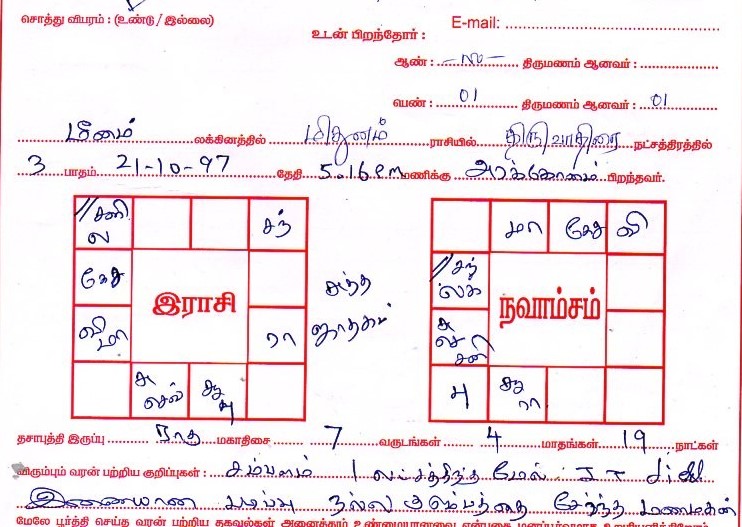 சொத்து விபரம் : (உண்டு / இல்லை)
E-mail:
உடன் பிறந்தோர் :
ஆண் : திருமணம் ஆனவர் :
பெண் : 01 திருமணம் ஆனவர் : 01
மீனம் லக்கினத்தில் மிதுனம் ராசியில் திருவாதிரை நட்சத்திரத்தில்
3 பாதம் 21-10-97 தேதி 5.16 PM மணிக்கு அரக்கோணம் பிறந்தவர்.
// சனி சந்
ல
கேது
இராசி
வி மா ரா
சுத்த
ஜாதகம்
சு சூ
செவ் பு
மா கேது வி
// சந்
லக்
நவாம்சம்
சு
செ
சனி
பு சூ
ரா
தசாபுத்தி இருப்பு ராகு மகாதிசை 7 வருடங்கள் 4 மாதங்கள் 19 நாட்கள்
விரும்பும் வரன் பற்றிய குறிப்புகள் : சம்பளம் 1 லட்சத்திற்கு மேல் IT
இணையான படிப்பு நல்ல குடும்பத்தை சேர்ந்த மணமகன்
மேலே பூர்த்தி செய்த வரன் பற்றிய தகவல்கள் அனைத்தும் உண்மையானவை என்பதை